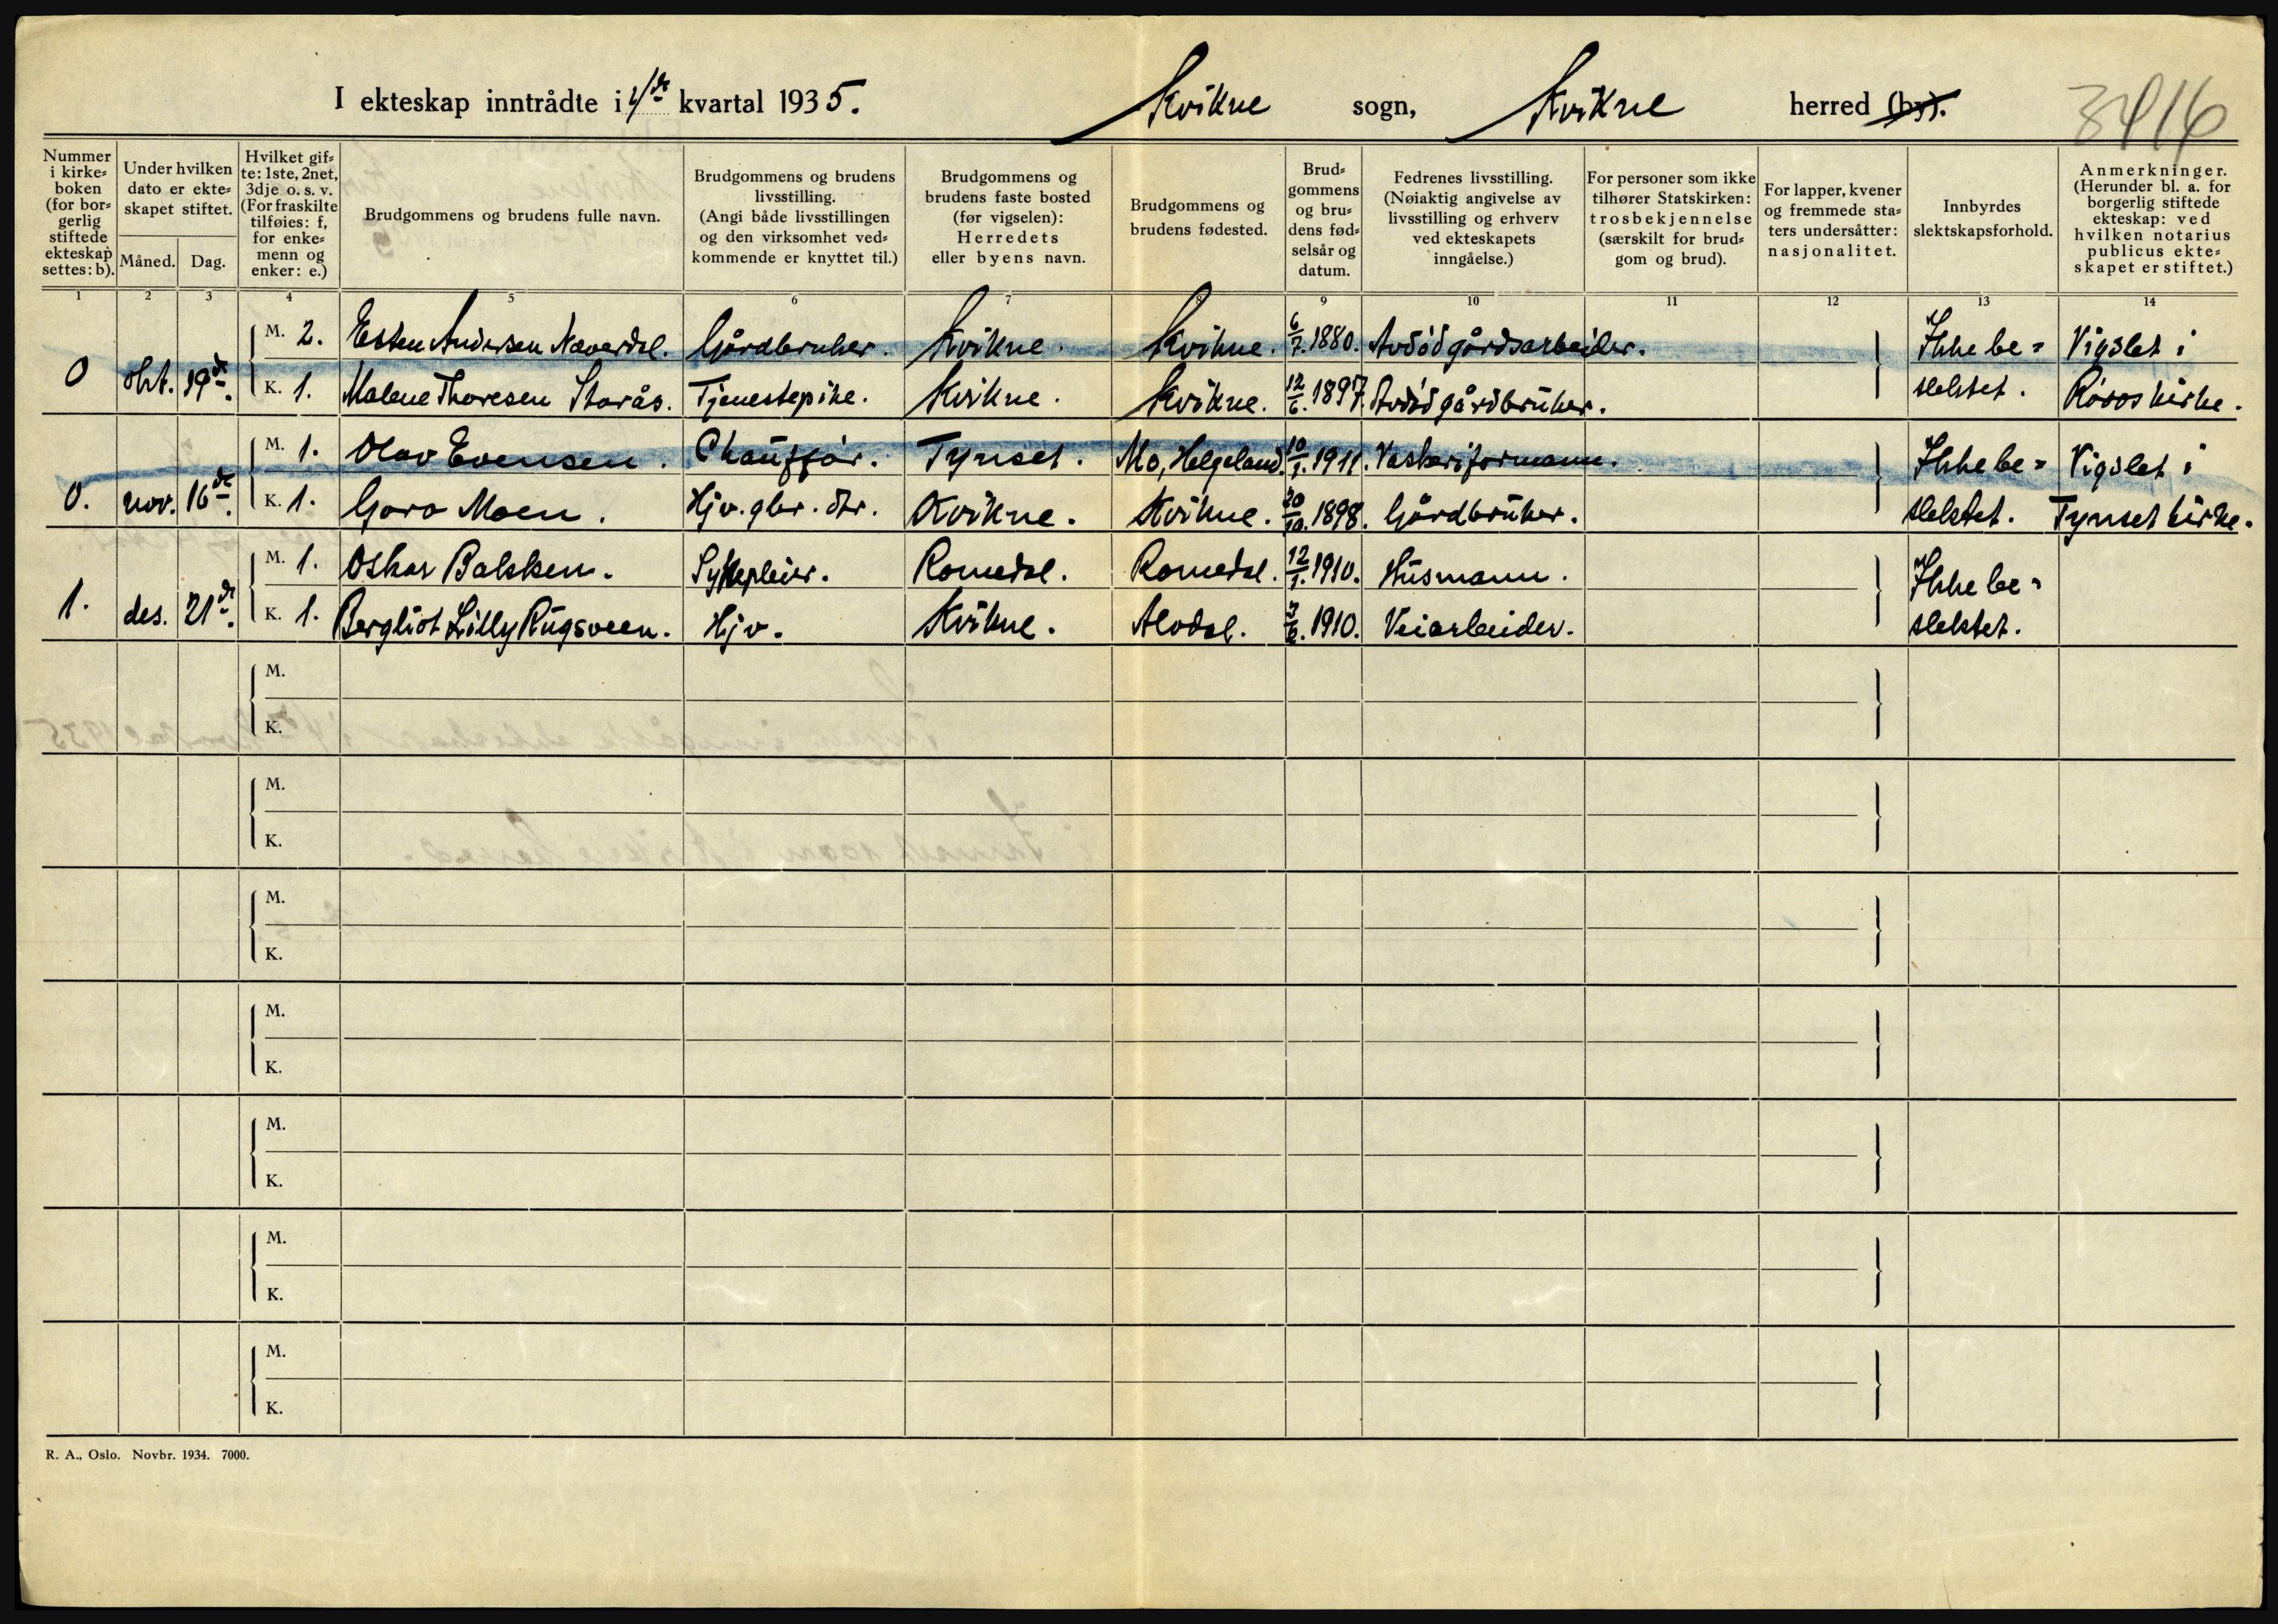 I ekteskap inntrådte i 4de kvartal 1935. Kvikne sogn, Kvikne herred (by). 3416
Nummer i kirke= boken (for bor= gerlig stiftede ekteskap settes: b).
Under hvilken dato er ekte= skapet stiftet. Måned. Dag.
Hvilket gif= te: 1ste, 2net, 3dje o. s. v. (For fraskilte tilføies: f, for enke= menn og enker: e.)
Brudgommens og brudens fulle navn.
Brudgommens og brudens livsstilling. (Angi både livsstillingen og den virksomhet ved= kommende er knyttet til.)
Brudgommens og brudens faste bosted (før vigselen): Herredets eller byens navn.
Brudgommens og brudens fødested.
Brud= gommens og bru= dens fød= selsår og datum.
Fedrenes livsstilling. (Nøiaktig angivelse av livsstilling og erhverv ved ekteskapets inngåelse.)
For personer som ikke tilhører Statskirken: trosbekjennelse (særskilt for brud= gom og brud).
For lapper, kvener og fremmede sta= ters undersåtter: nasjonalitet.
Innbyrdes slektskapsforhold.
Anmerkninger. (Herunder bl. a. for borgerlig stiftede ekteskap: ved hvilken notarius publicus ekte= skapet er stiftet.)
1 2 3 4 5 6 7 8 9 10 11 12 13 14
M. 2. Esten Andersen Næverdal. Gårdbruker. Kvikne. Kvikne. 6/7. 1880. Avdød gårdsarbeider. Ikke be= Vigslet i
0 okt. 19de. K. 1. Malene Thoresen Storås. Tjenestepike. Kvikne. Kvikne. 12/6. 1897. Avdød gårdbruker. slektet. Røros kirke.
M. 1. Olav Evensen. Chauffør. Tynset. Mo, Helgeland. 10/1. 1911. Vaskeriformann. Ikke be= Vigslet i
0. nov. 16de. K. 1. Goro Moen. Hjv. gbr. dtr. Kvikne. Kvikne. 20/10. 1898. Gårdbruker. slektet. Tynset kirke.
M. 1. Oskar Balsken. Sykepleier. Romedal. Romedal. 12/1. 1910. Husmann. Ikke be=
1. des. 21de. K. 1. Bergliot Lilly Rugsveen. Hjv. Kvikne. Alvdal. 3/6. 1910. Veiarbeider. slektet.
M.
K.
M.
K.
M.
K.
M.
K.
M.
K.
M.
K.
M.
K.
R. A., Oslo. Novbr. 1934. 7000.